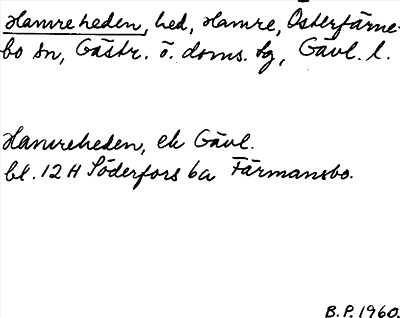 Hamreheden, hed, Hamre, Österfärne-
bo sn, Gästr. ö. doms. tg, Gävl. l.
Hamreheden, ek Gävl.
bl. 12 H Söderfors 6a Färmansbo.
B.P. 1960.